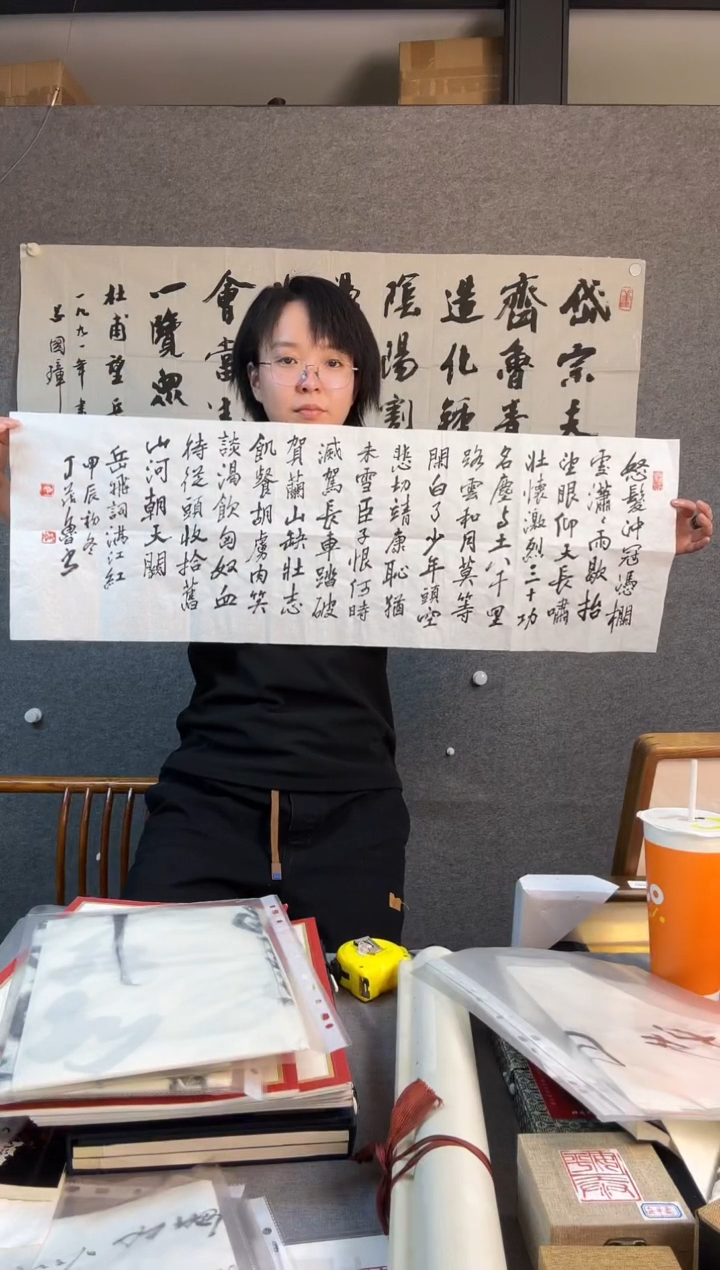 岱宗夫
齊魯青
造化鍾
陰陽割
會當
一覽眾
杜甫望岳
一九九一年書
國璋
怒髮沖冠憑欄
處瀟〻雨歇抬
望眼仰天長嘯
壯懷激烈三十功
名塵与土八千里
路雲和月莫等
閑白了少年頭空
悲切靖康恥猶
未雪臣子恨何時
滅駕長車踏破
賀蘭山缺壯志
飢餐胡虜肉笑
談渴飲匈奴血
待從頭收拾舊
山河朝天闕
岳飛詞滿江紅
甲辰初冬
丁茂魯书